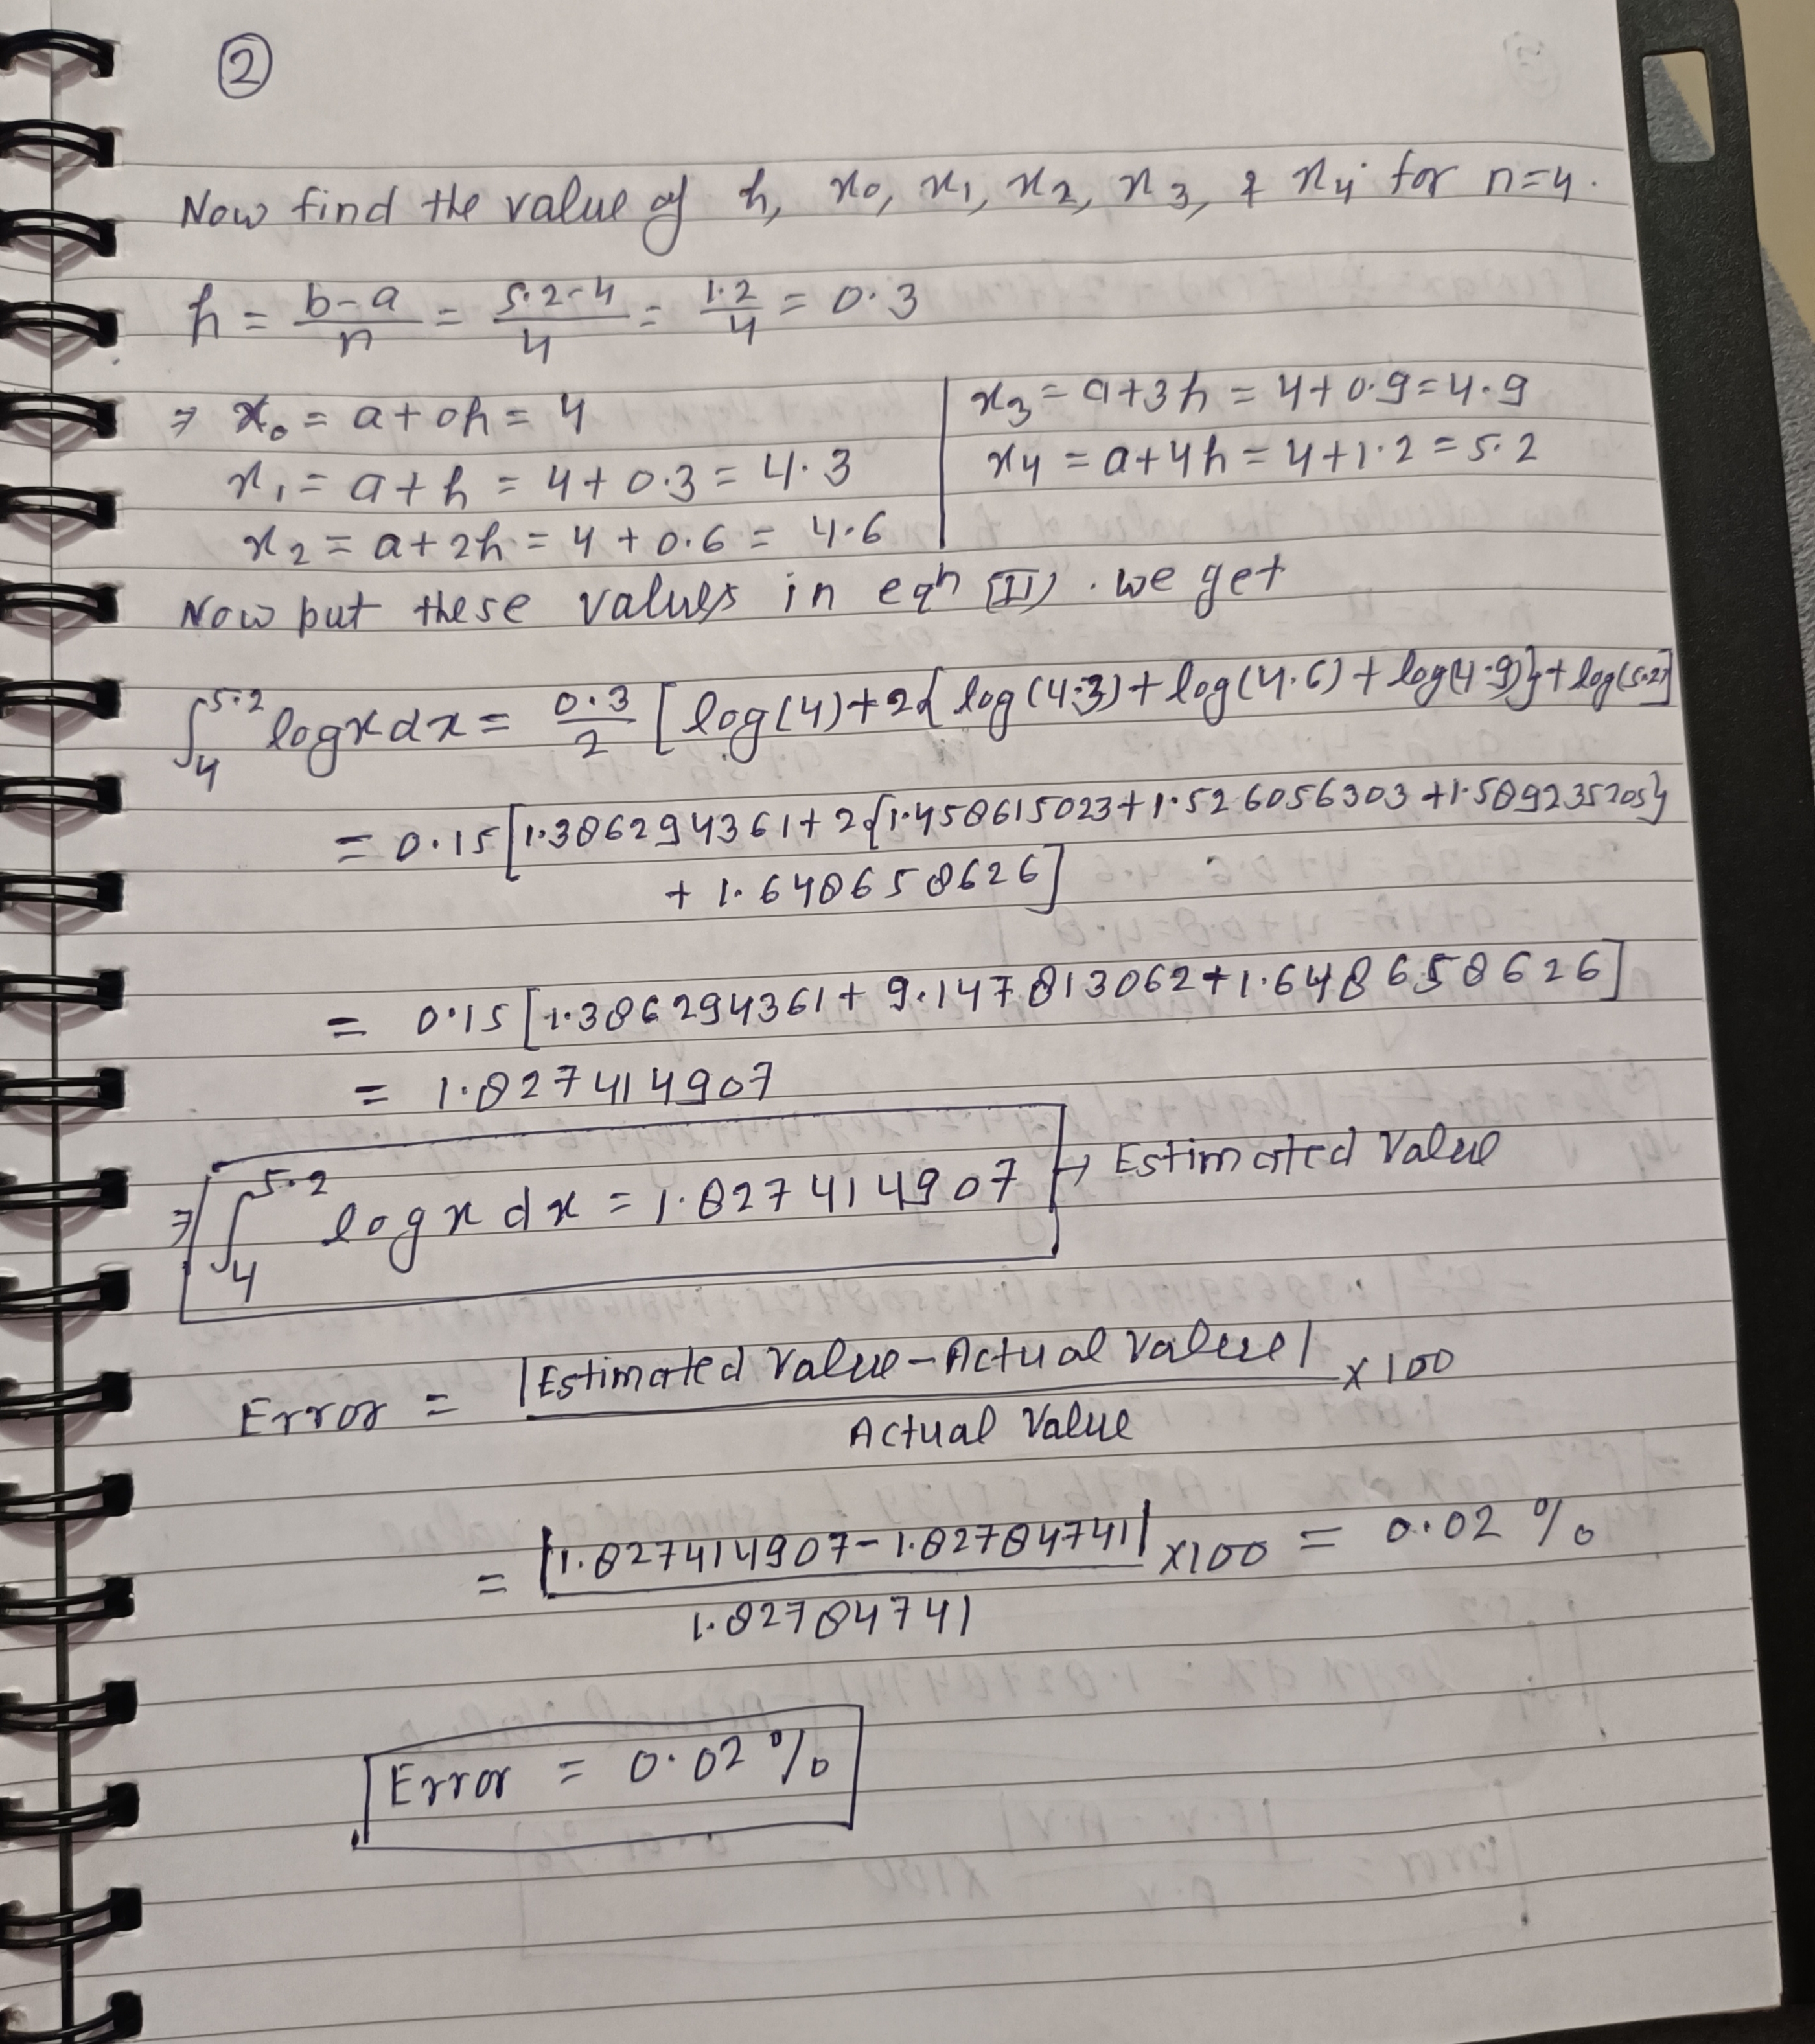 ②
Now find the value of h, x₀, x₁, x₂, x₃, & x₄ for n=4.
h = b-a/n = 5.2-4/4 = 1.2/4 = 0.3
⇒ x₀ = a+0h = 4
x₁ = a+h = 4+0.3 = 4.3
x₂ = a+2h = 4+0.6 = 4.6
x₃ = a+3h = 4+0.9 = 4.9
x₄ = a+4h = 4+1.2 = 5.2
Now put these values in eqn (II). we get
∫₄^5.2 logx dx = 0.3/2 [log(4)+2{log(4.3)+log(4.6)+log(4.9)}+log(5.2)]
= 0.15[1.386294361+2{1.458615023+1.526056303+1.589235205}
+ 1.648658626]
= 0.15[1.386294361+9.147813062+1.648658626]
= 1.827414907
⇒ ∫₄^5.2 logx dx = 1.827414907 → Estimated Value
Error = |Estimated Value-Actual Value|/Actual Value ×100
= |1.827414907-1.82784741|/1.82784741 ×100 = 0.02 %
Error = 0.02 %